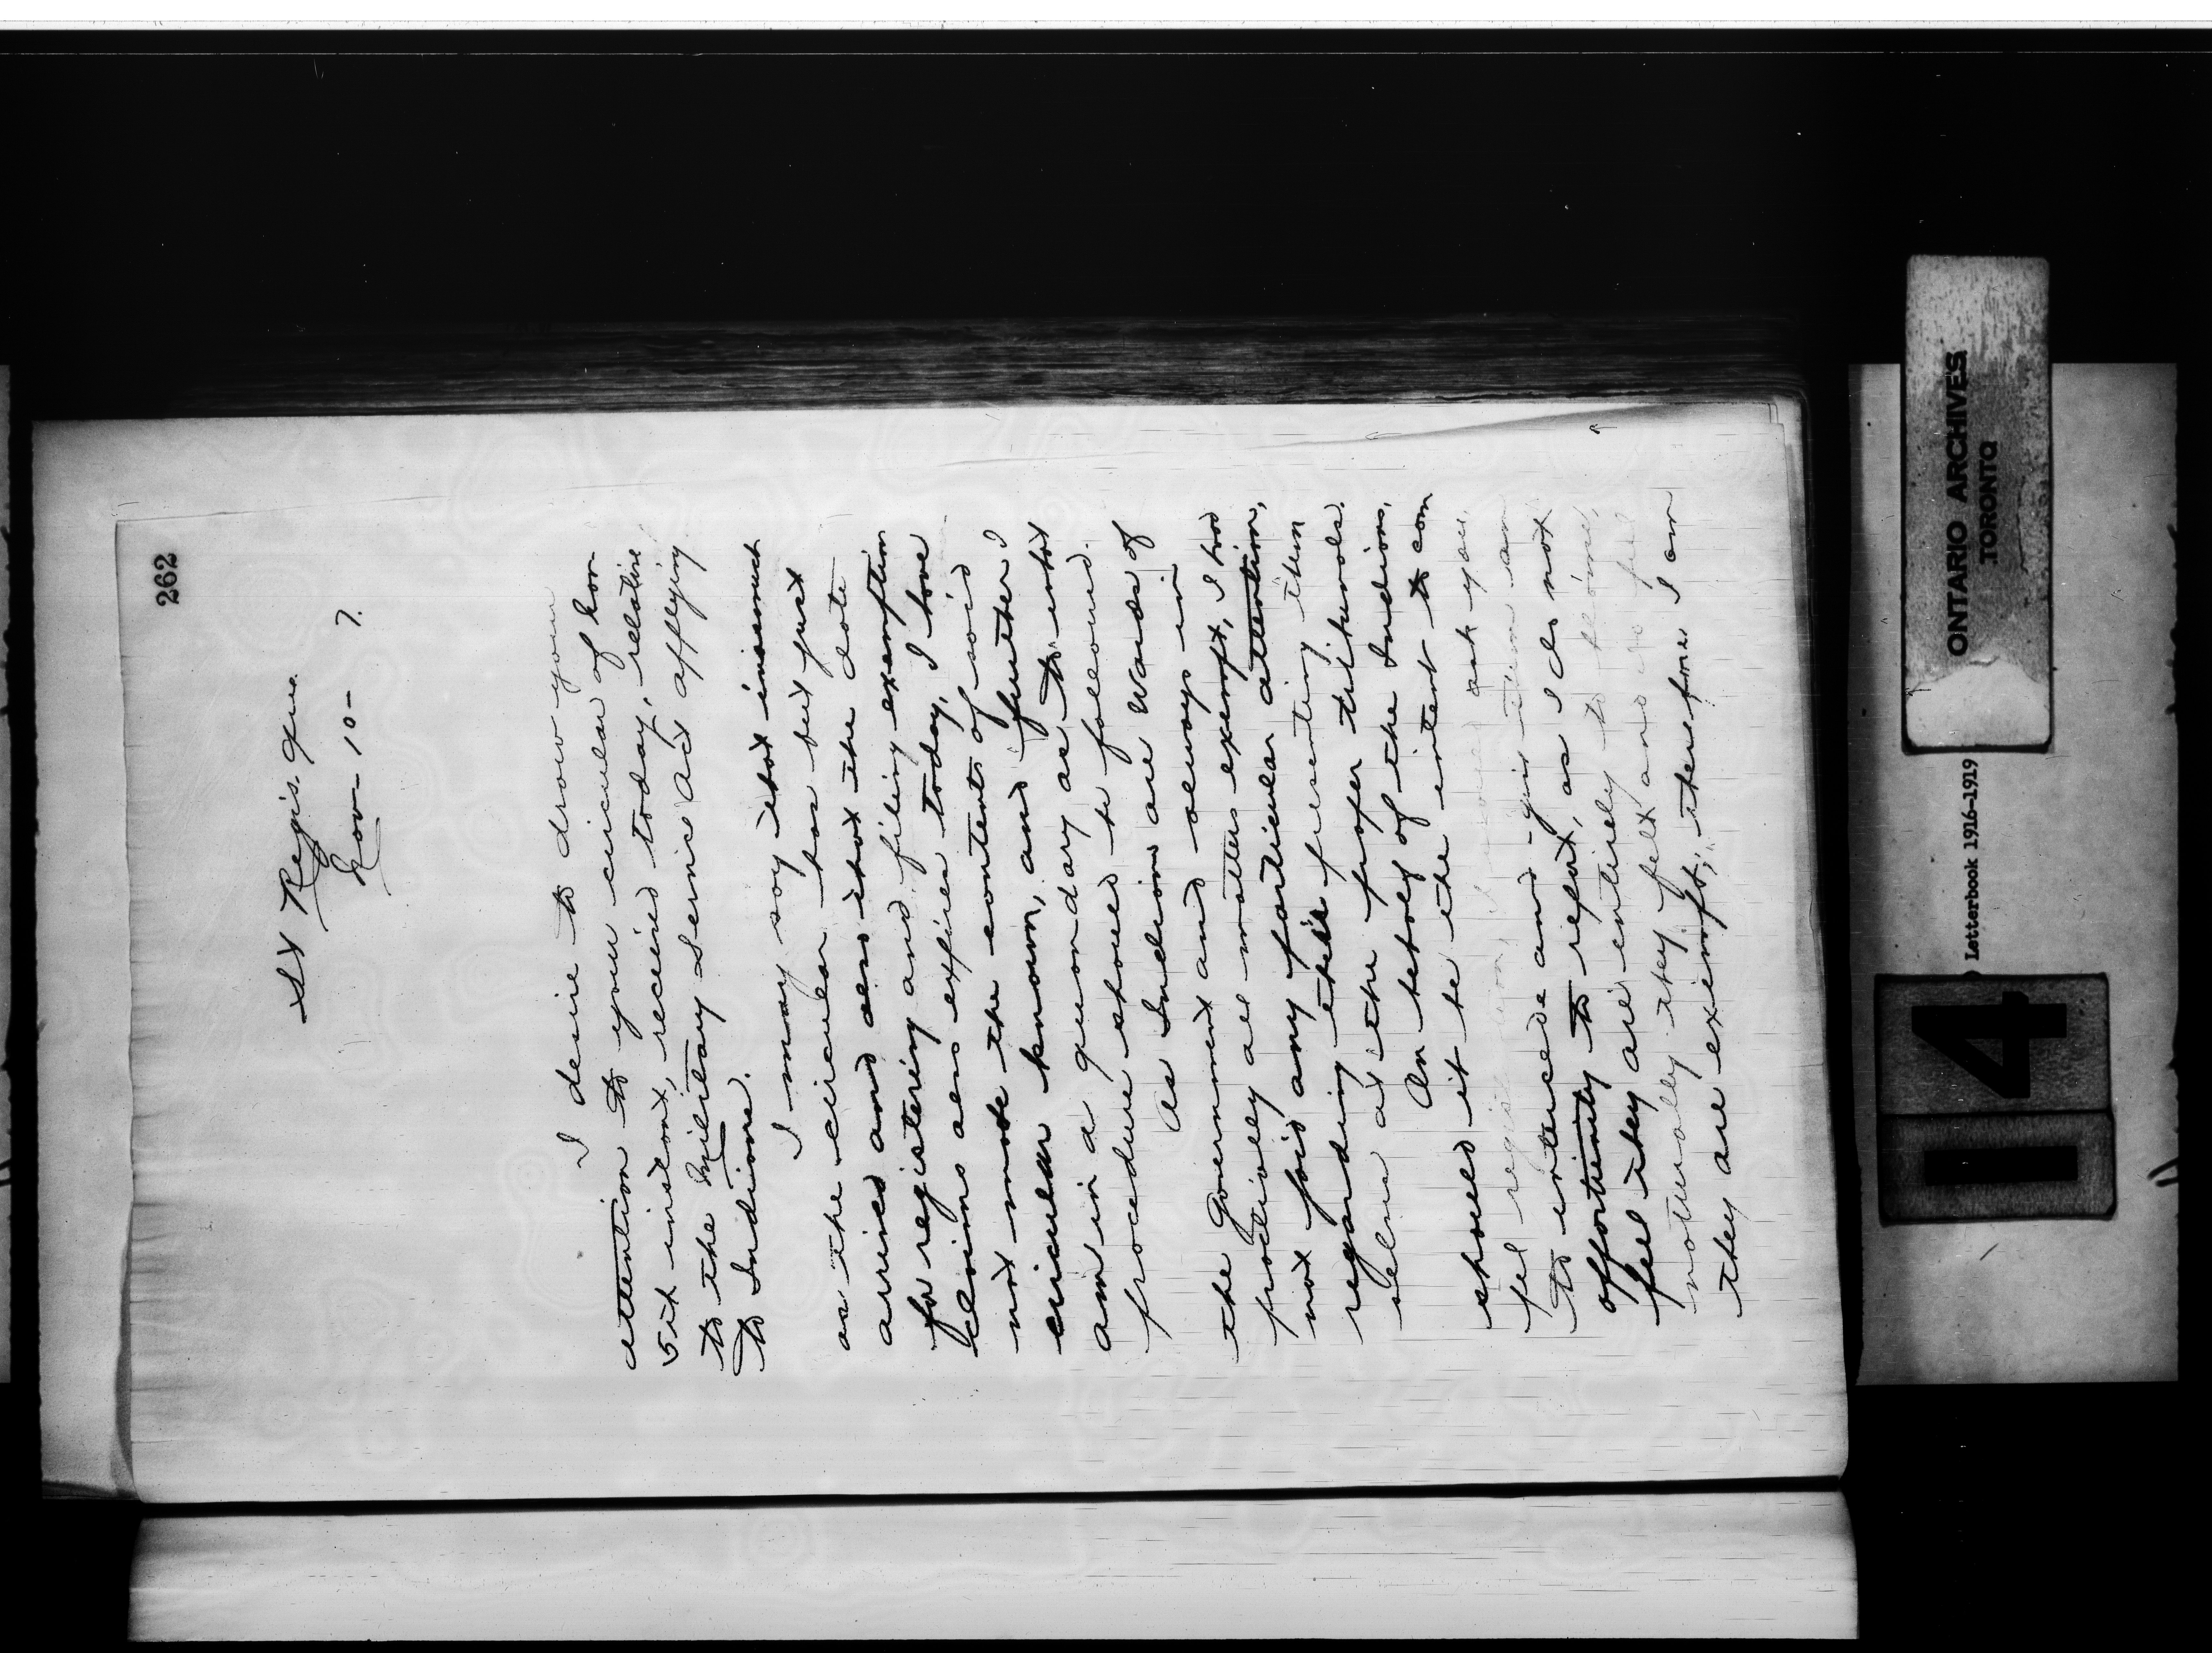 262
St Regis. Que.
Nov- 10- 7.
I desire to draw your
attention to your circular of Nov
5th instant, received today, relative
to the Military Service Act applying
to Indians.
I may say that inasmuch
as the circular has but just
arrived and also that the date
for registering and filing exemption
claims also expires today, I have
not made the contents of said
circular known, and further I
am in a quandary as to what
procedure should be followed.
As Indians are Wards of
the Government and always in
practically all matters exempt, I had
not paid any particular attention,
regarding their presenting them
selves at the proper tribunals.
On behalf of the Indians,
should it be the intent to com
pel registration, I would ask you,
to intercede and give them an
opportunity to report, as I do not
feel they are entirely to blame,
naturally they felt and do feel
they are exempt; therefore I am
ONTARIO ARCHIVES
TORONTO
Letterbook 1916-1919
14